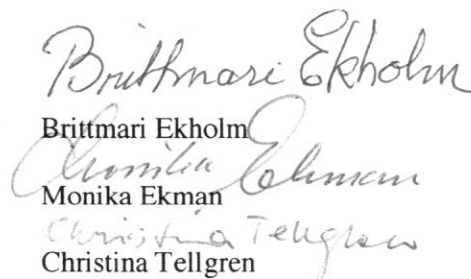 Brittmari Ekholm
Brittmari Ekholm
Monika Ekman
Monika Ekman
Christina Tellgren
Christina Tellgren